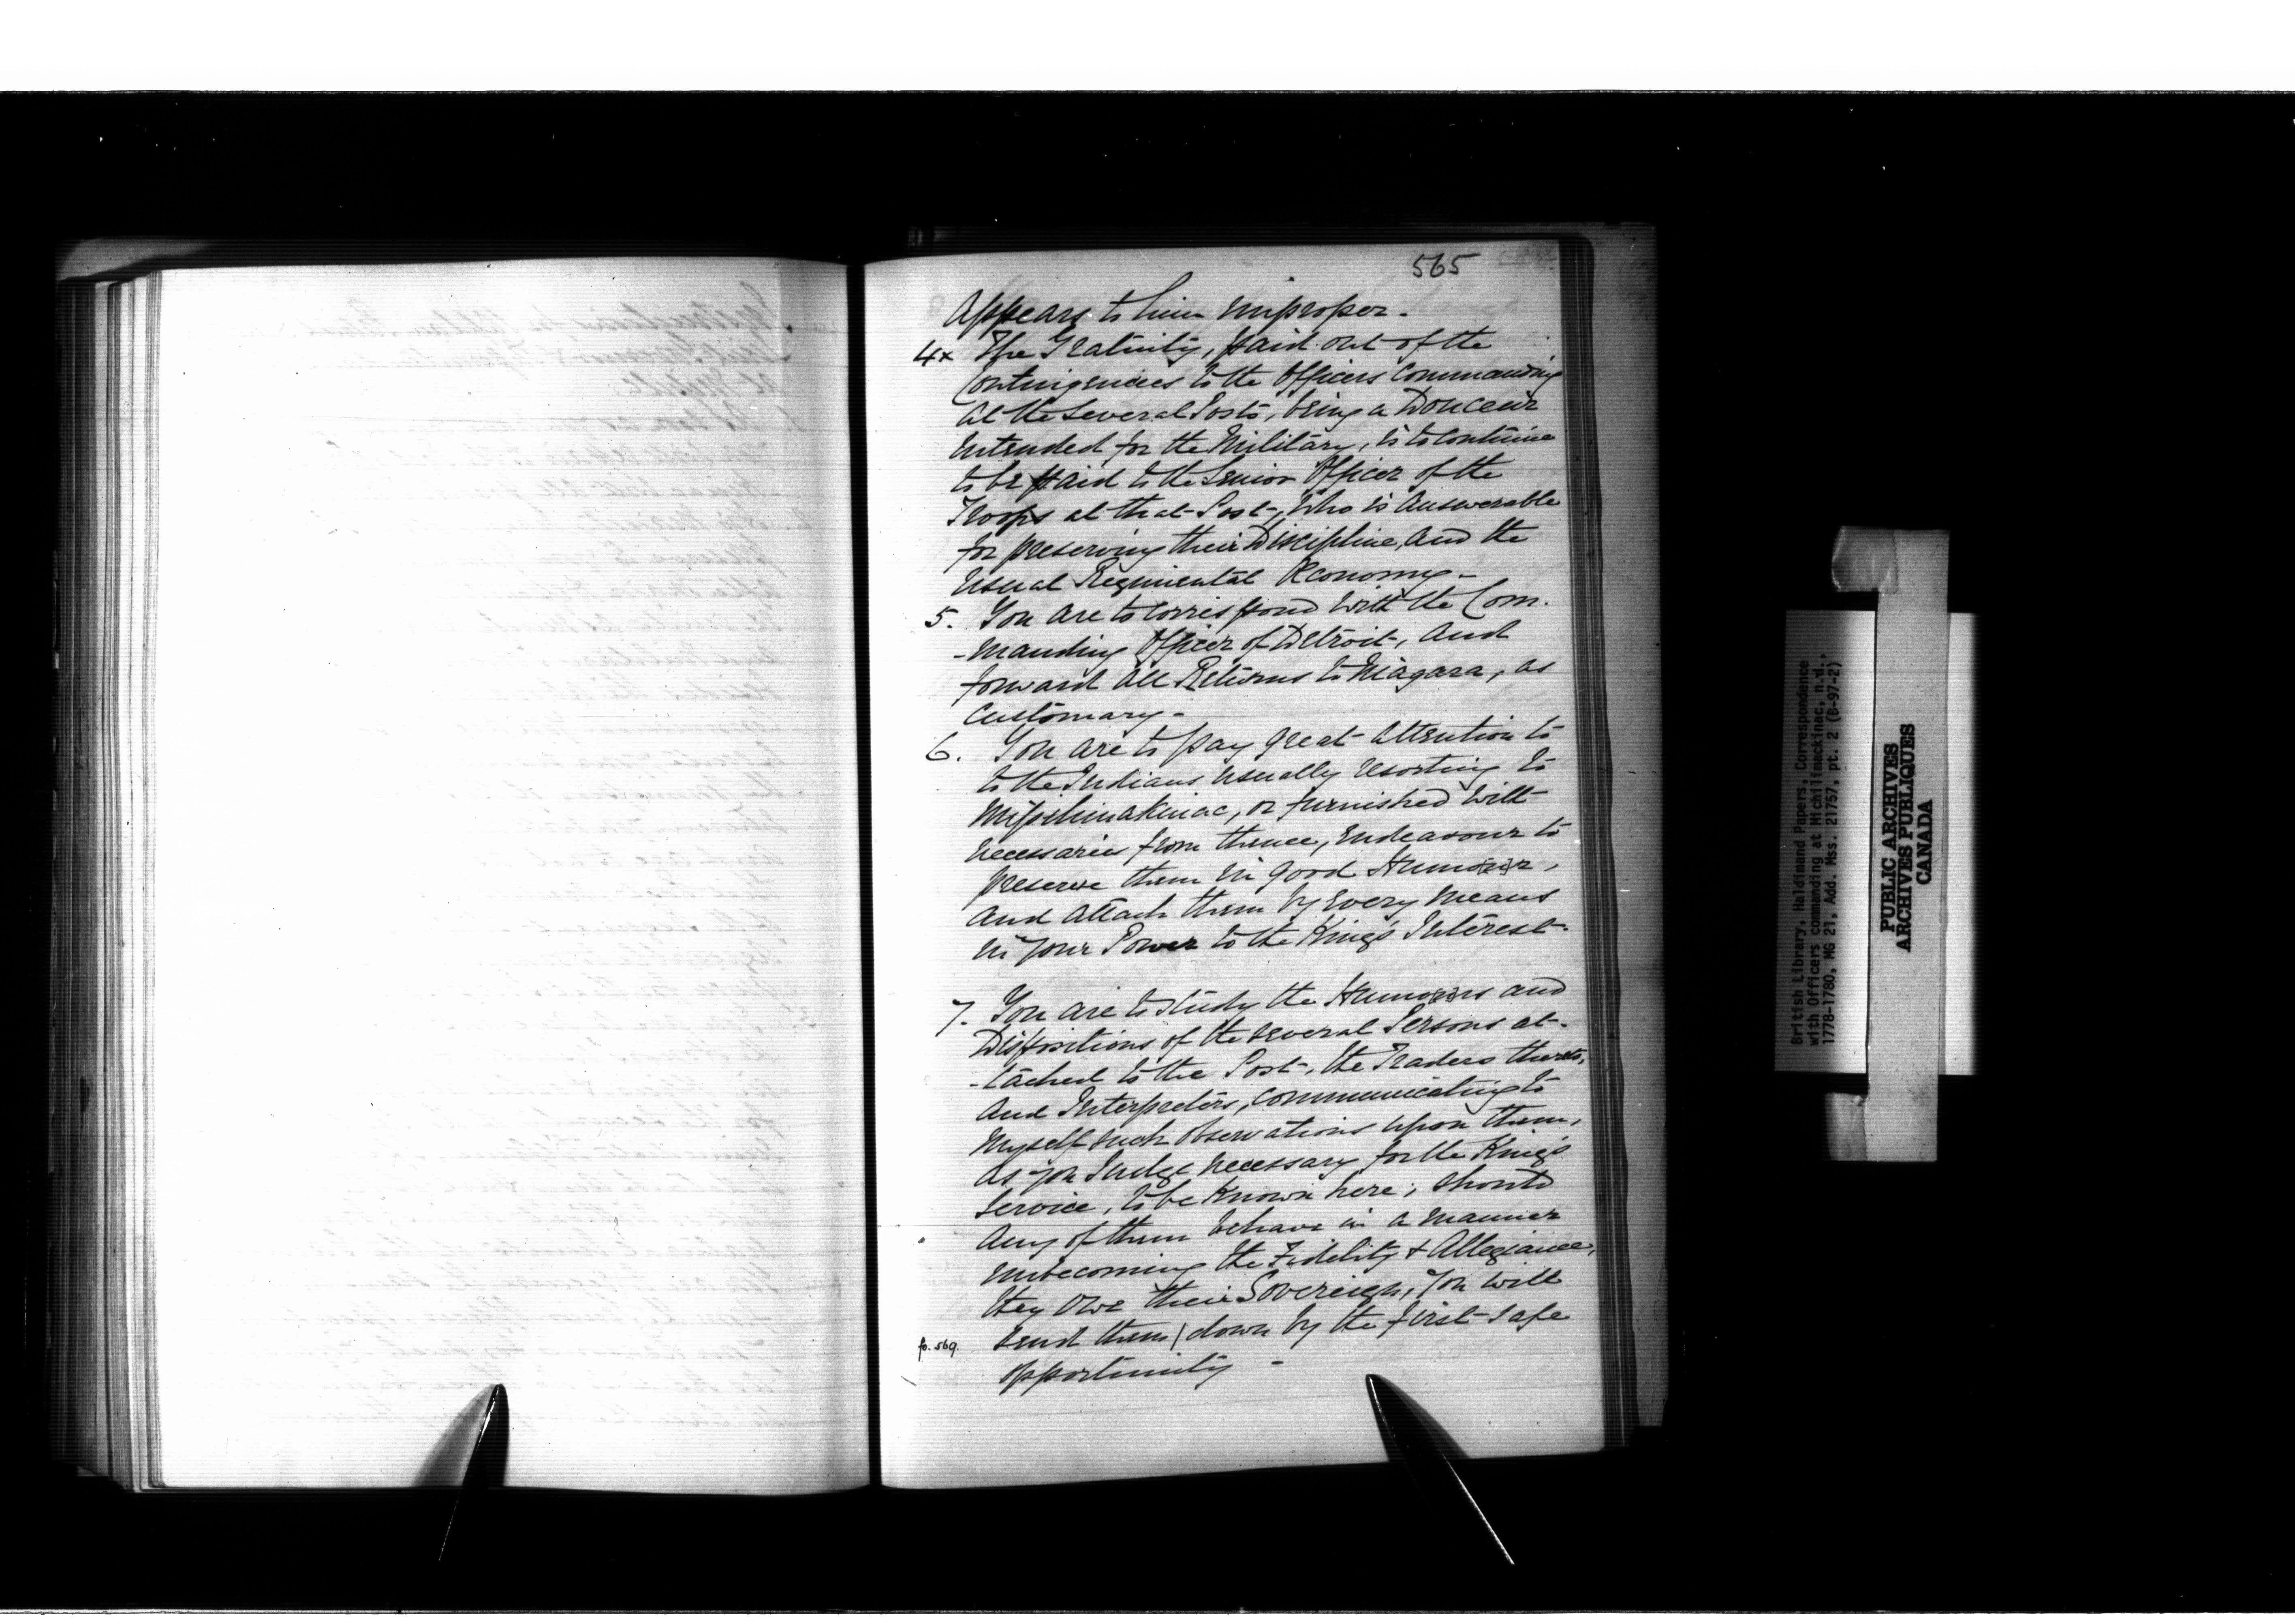 565
Appears to him improper.
4x The Gratuity, paid out of the
Contingencies to the Officers commanding
at the Several Posts, being a Douceur
intended for the Military, is to continue
to be paid to the Senior Officer of the
Troops at that Post, who is answerable
for preserving their Discipline, and the
usual Regimental Œconomy -
5. You are to correspond with the Com.
-manding Officer of Detroit, and
forward all Returns to Niagara, as
customary -
6. You are to pay great attention to
to the Indians usually resorting to
Missilimakinac, or furnished with
necessaries from thence, endeavour to
preserve them in good Humour,
and attach them by every means
in your Power to the King's Interest.
7. You are to study the Humours and
Dispositions of the several Persons at-
-tached to the Post, the Traders thereto,
and Interpreters, communicating to
myself such observations upon them,
as you Judge necessary for the King's
Service, to be known here; should
any of them behave in a manner
unbecoming the Fidelity & Allegiance,
they owe their Sovereign, you will
fo. 569. send them | down by the first safe
opportunity -
British Library, Haldimand Papers, Correspondence
with Officers commanding at Michilimackinac, n.d.,
1778-1780, MG 21, Add. Mss. 21757, pt. 2 (B-97-2)
PUBLIC ARCHIVES
ARCHIVES PUBLIQUES
CANADA